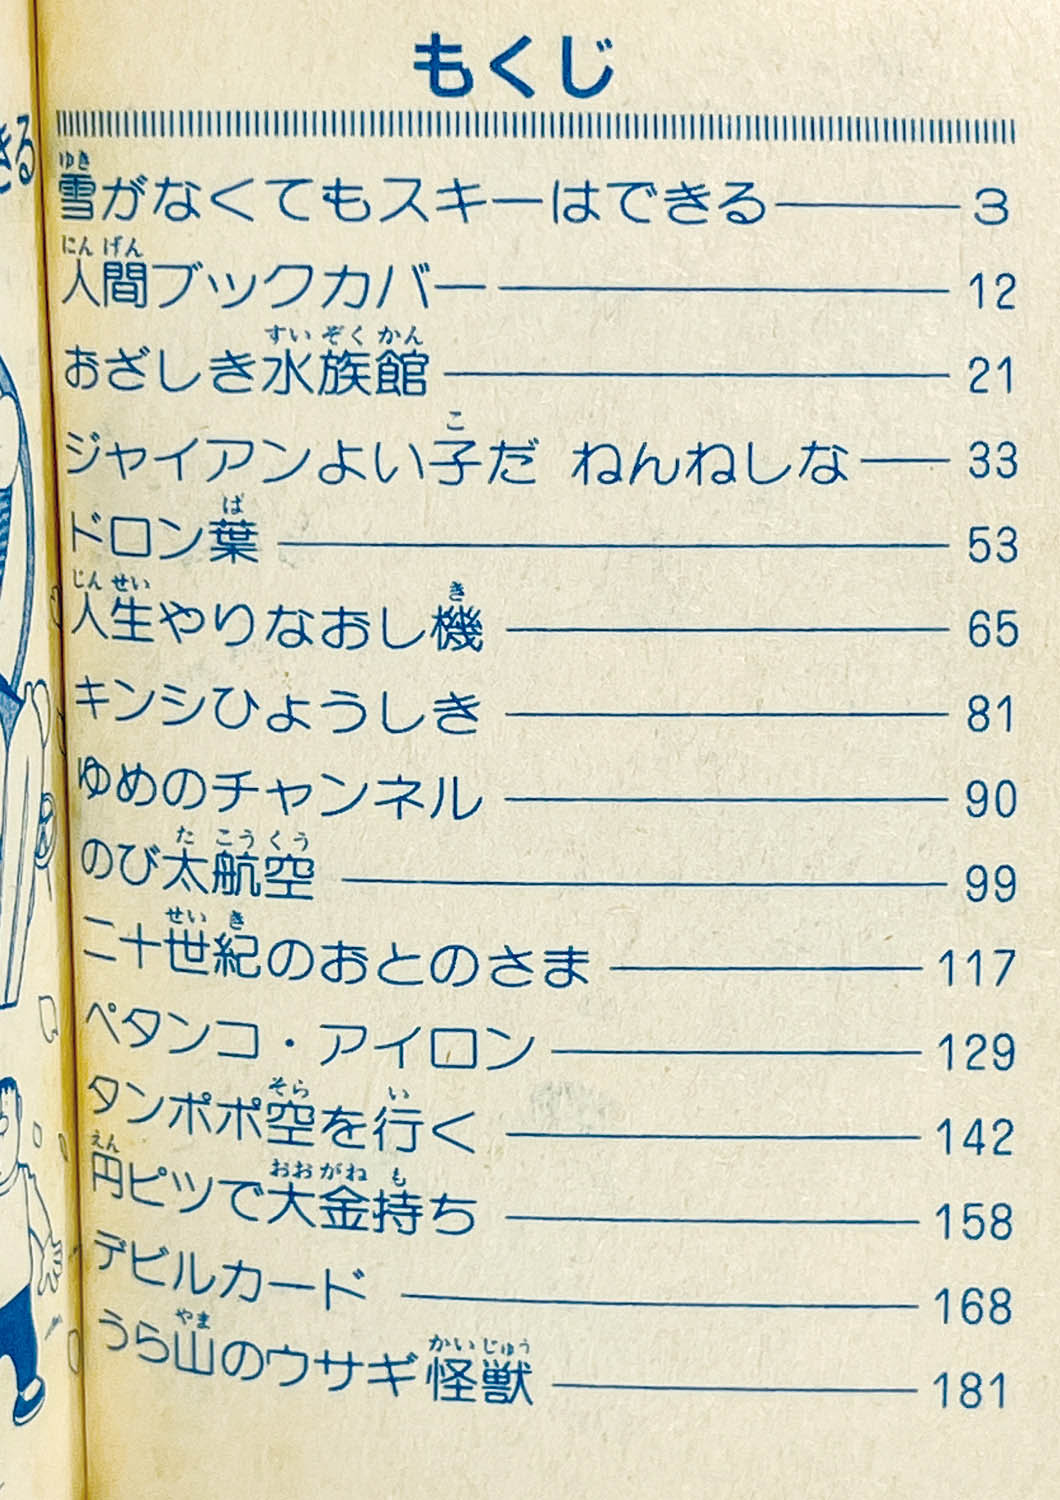 もくじ
雪がなくてもスキーはできる 3
人間ブックカバー 12
おざしき水族館 21
ジャイアンよい子だ ねんねしな 33
ドロン葉 53
人生やりなおし機 65
キンシひょうしき 81
ゆめのチャンネル 90
のび太航空 99
二十世紀のおとのさま 117
ペタンコ・アイロン 129
タンポポ空を行く 142
円ピツで大金持ち 158
デビルカード 168
うら山のウサギ怪獣 181